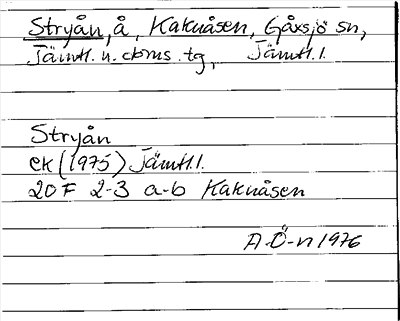 Stryån, å, Kaknåsen, Gåxsjö sn,
Jämtl. n. doms. tg, Jämtl. l.
Stryån
ek (1975) Jämtl. l.
20 F 2-3 a-b Kaknåsen
A-Ö-n 1976